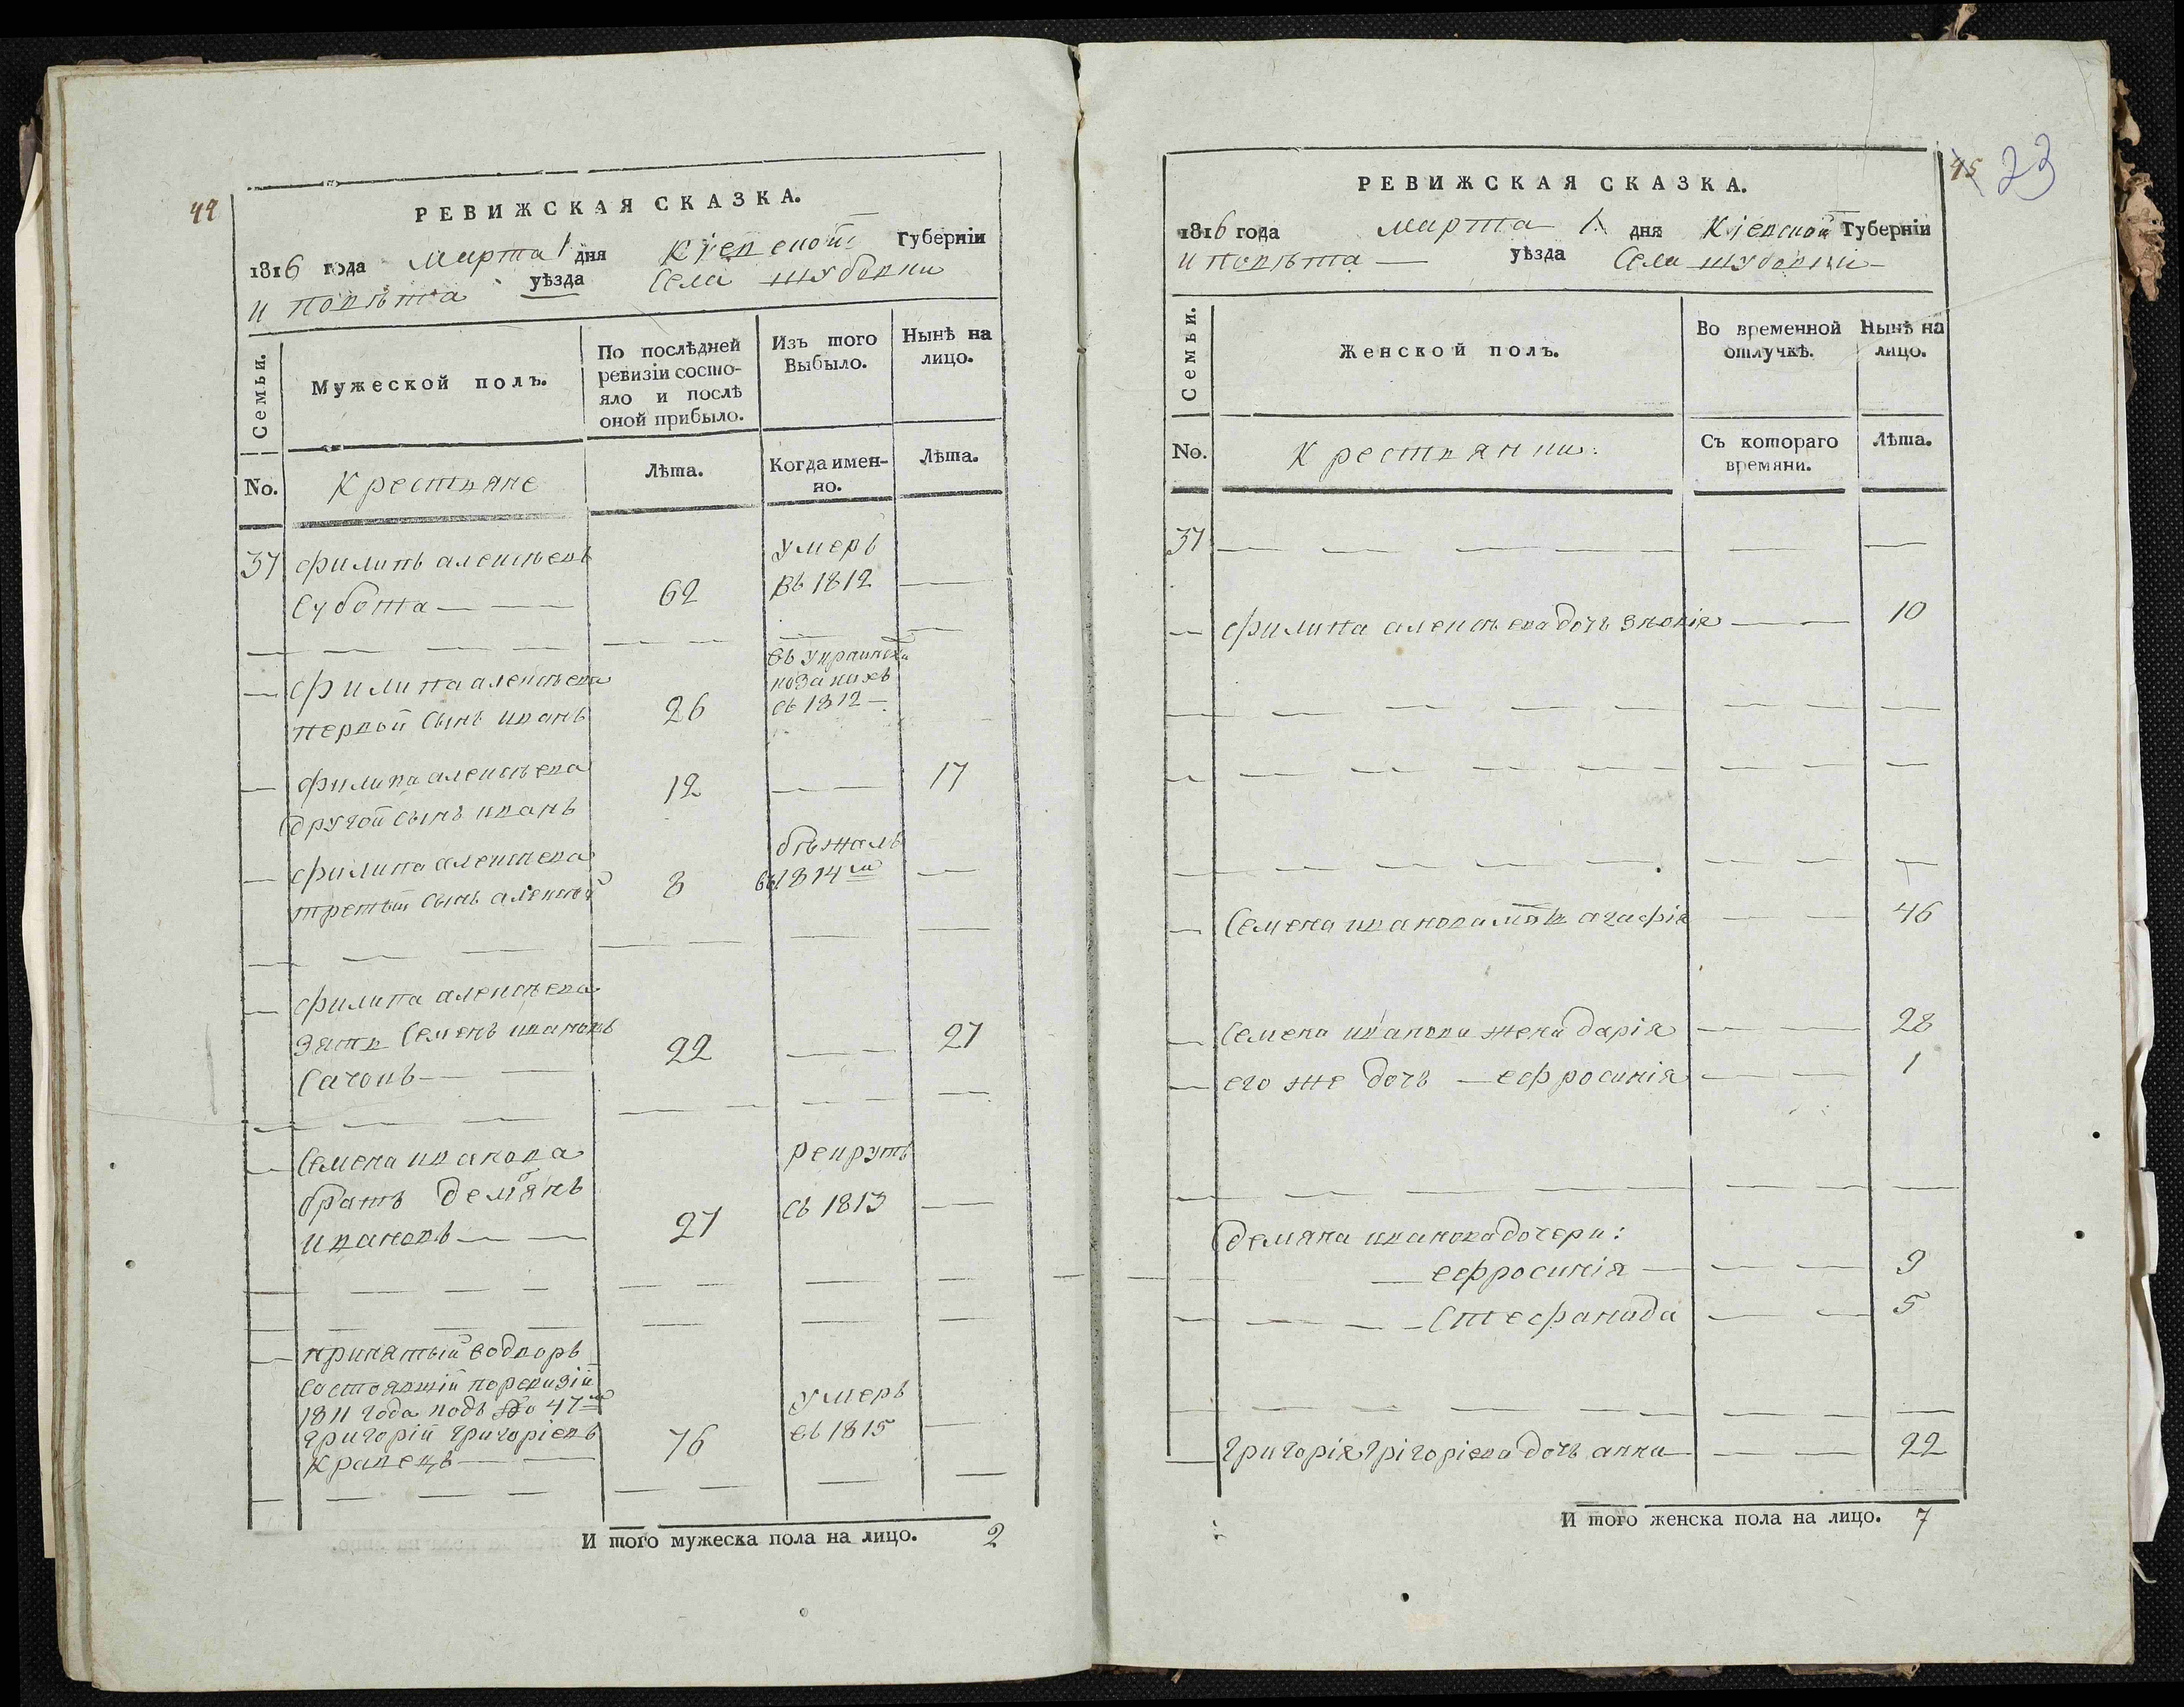 44
РЕВИЖСКАЯ СКАЗКА.
1816 года марта 1 дня Кіевской Губерніи
и повѣта уѣзда Села шубовки
Семьи.
Мужеской полъ.
По послѣдней
ревизіи состо-
яло и послѣ
оной прибыло.
Изъ того
Выбыло.
Нынѣ на
лицо.
No.
Крестьяне
Лѣта.
Когда имен-
но.
Лѣта.
37 филипъ алексѣевъ умеръ
Субота — — — 62 въ 1812 —
— филипа алексѣева въ украински козакихъ
первой сынъ иванъ 26 съ 1812 —
— филипа алексѣева
другой сынъ иванъ 12 — — 17
— филипа алексѣева бѣжалъ
третый сынъ алексѣй 8 въ 1814м —
— филипа алексѣева
зять Семенъ ивановъ
Сачокъ — — 22 — — 27
— Семена иванова рекрутъ
братъ демянъ съ 1813 —
ивановъ — — 27
— принятый водворъ
состоявшій поревизіи
1811 года подъ № 47м умеръ
григорій григоріевъ въ 1815 —
Кравецъ — — 76
И того мужеска пола на лицо. 2
45 23
РЕВИЖСКАЯ СКАЗКА.
1816 года марта 1. дня Кіевской Губерніи
и повѣта — уѣзда Села шубовки —
Семьи.
Женской полъ.
Во временной
отлучкѣ.
Нынѣ на
лицо.
No.
Крестьянки:
Съ котораго
времяни.
Лѣта.
37 — — — — — — —
— филипа алексѣева дочь зѣновія — — 10
— Семена иванова мать агафія — — 46
— Семена иванова жена дарія — — 28
— его же дочь — ефросинія — — 1
демяна иванова дочери:
— ефросинія — — — 9
— — — — Стефанида — — 5
— григорія григоріева дочь анна — — 22
И того женска пола на лицо. 7